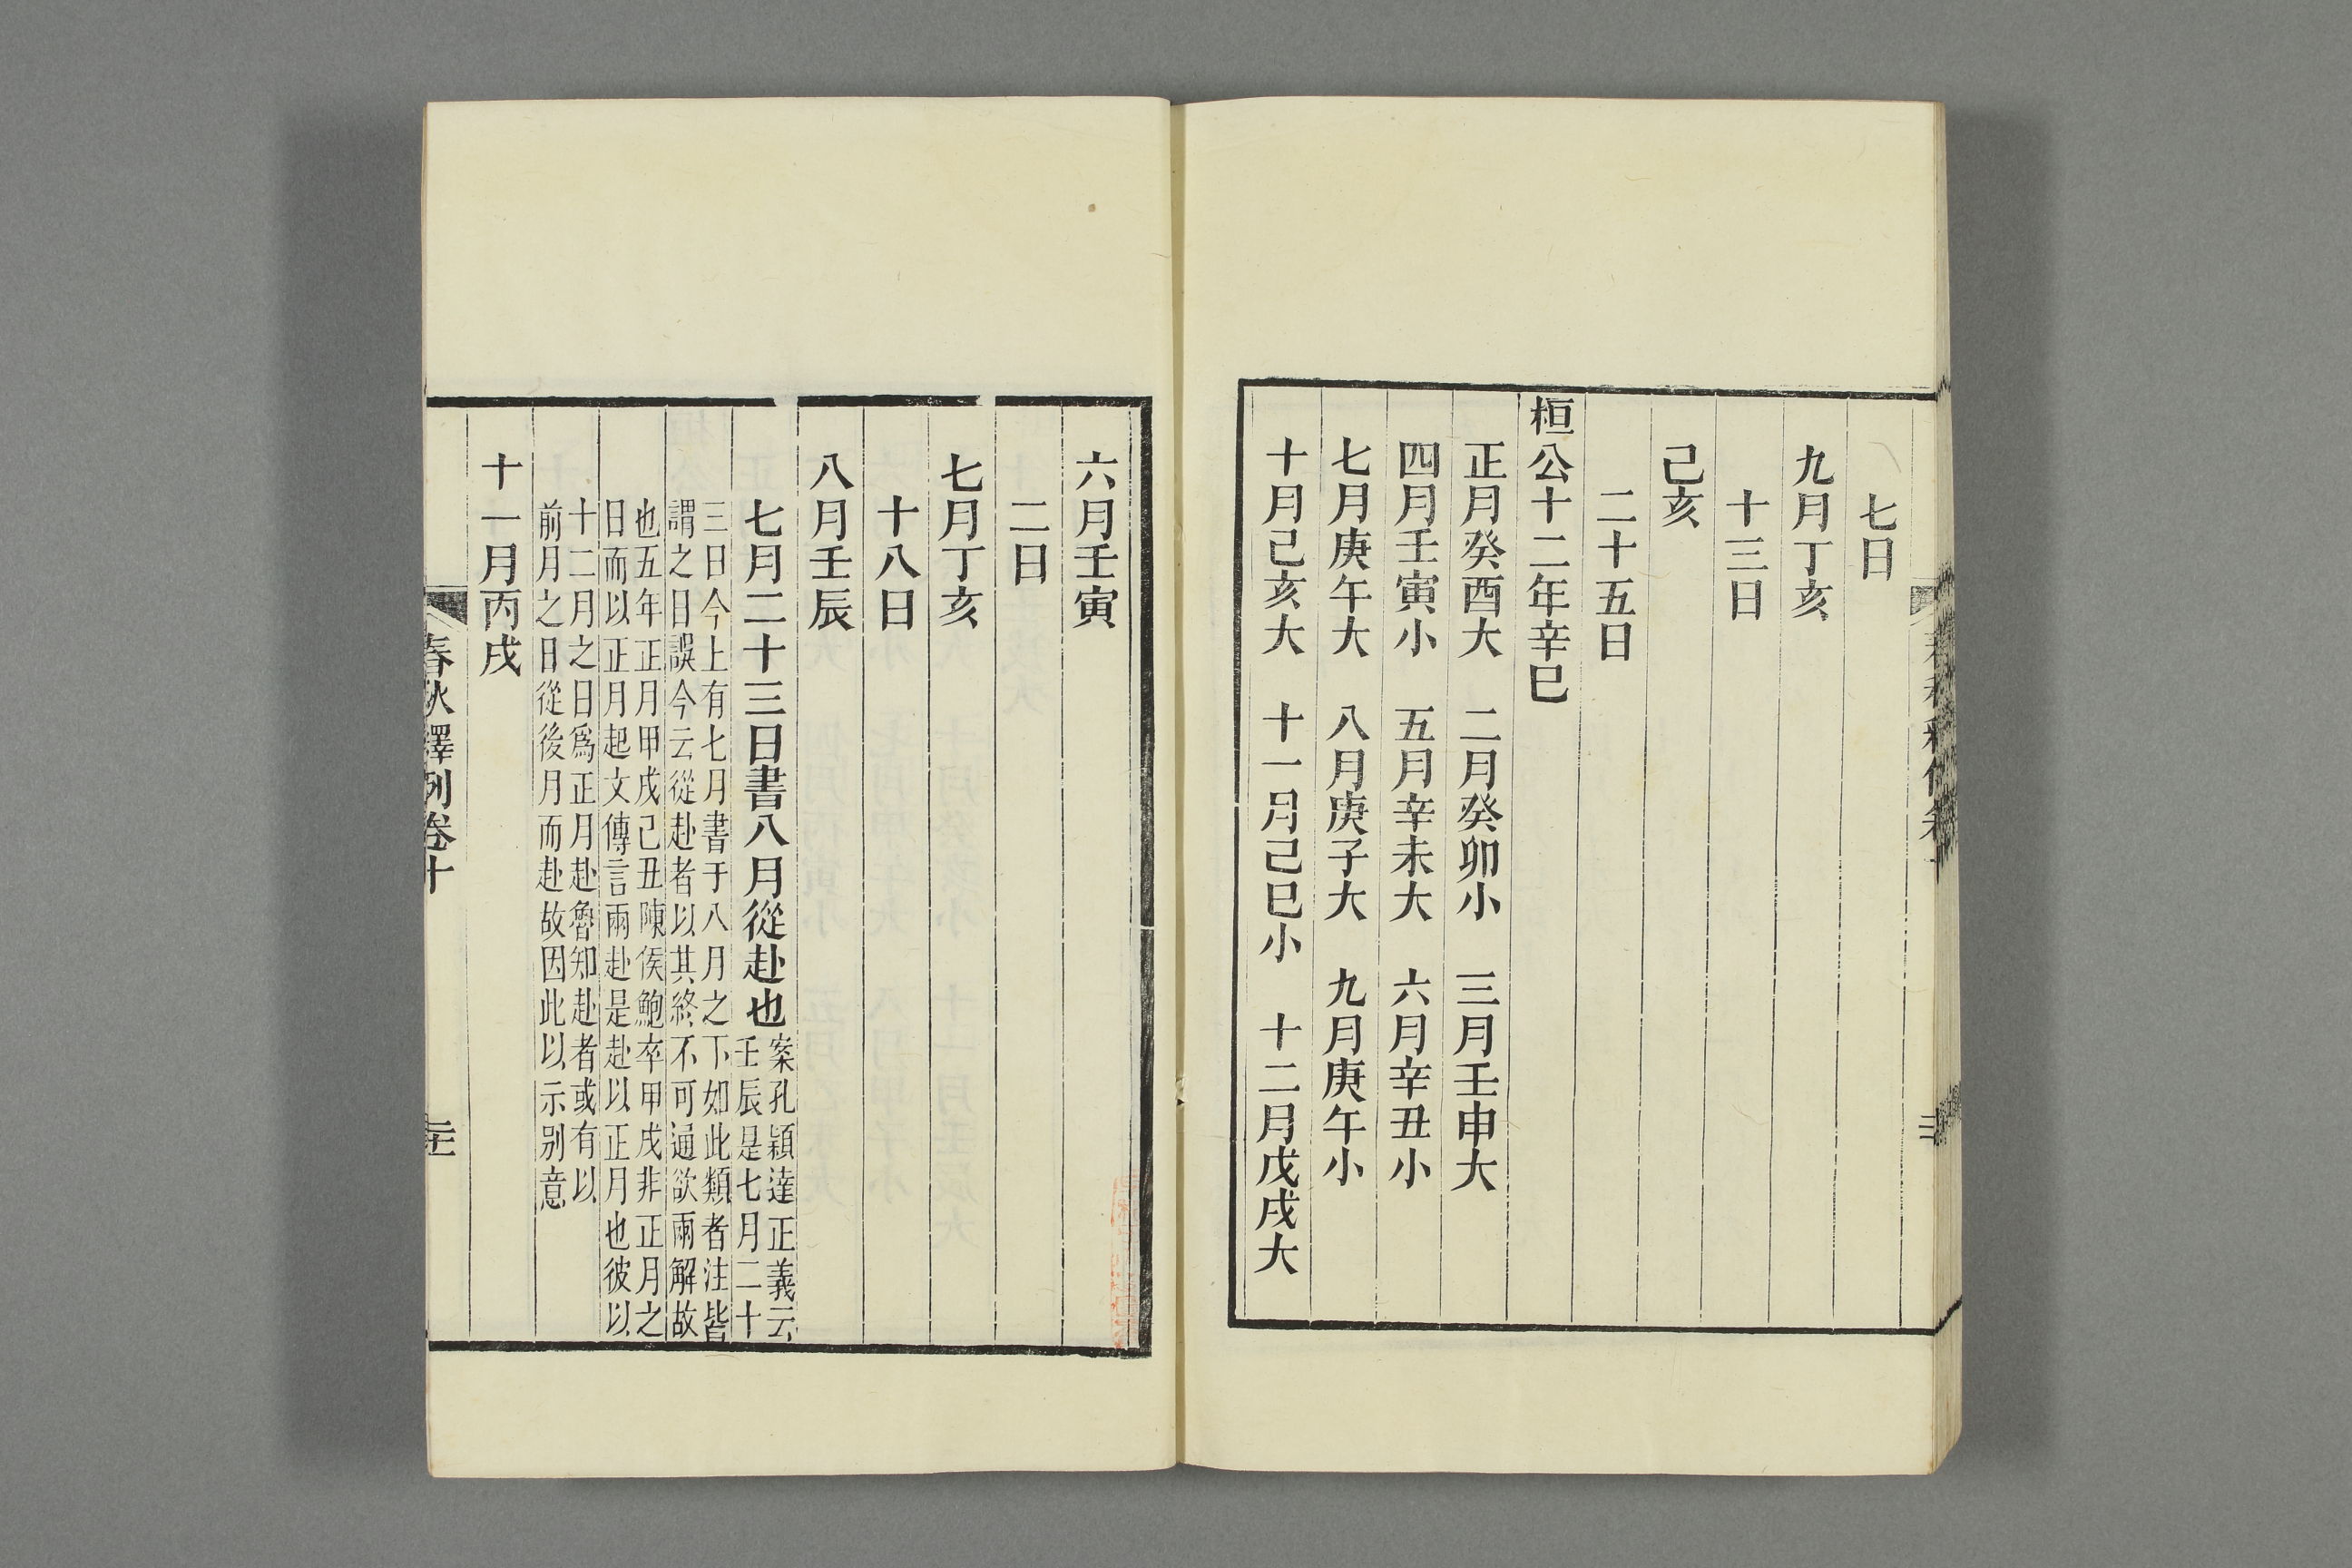 七日
九月丁亥
十三日
己亥
二十五日
桓公十二年辛巳
正月癸酉大　二月癸卯小　三月壬申大
四月壬寅小　五月辛未大　六月辛丑小
七月庚午大　八月庚子大　九月庚午小
十月己亥大　十一月己巳小　十二月戊戌大
六月壬寅
二日
七月丁亥
十八日
八月壬辰
七月二十三日書八月從赴也
案孔穎達正義云
壬辰是七月二十
三日今上有七月書于八月之下如此類者注皆
謂之日誤今云從赴者以其終不可通欲兩解故
也五年正月甲戌己丑陳侯鮑卒甲戌非正月之
日而以正月起文傳言兩赴是赴以正月也彼以
十二月之日爲正月赴魯知赴者或有以
前月之日從後月而赴故因此以示别意
十一月丙戌
春秋釋例卷十